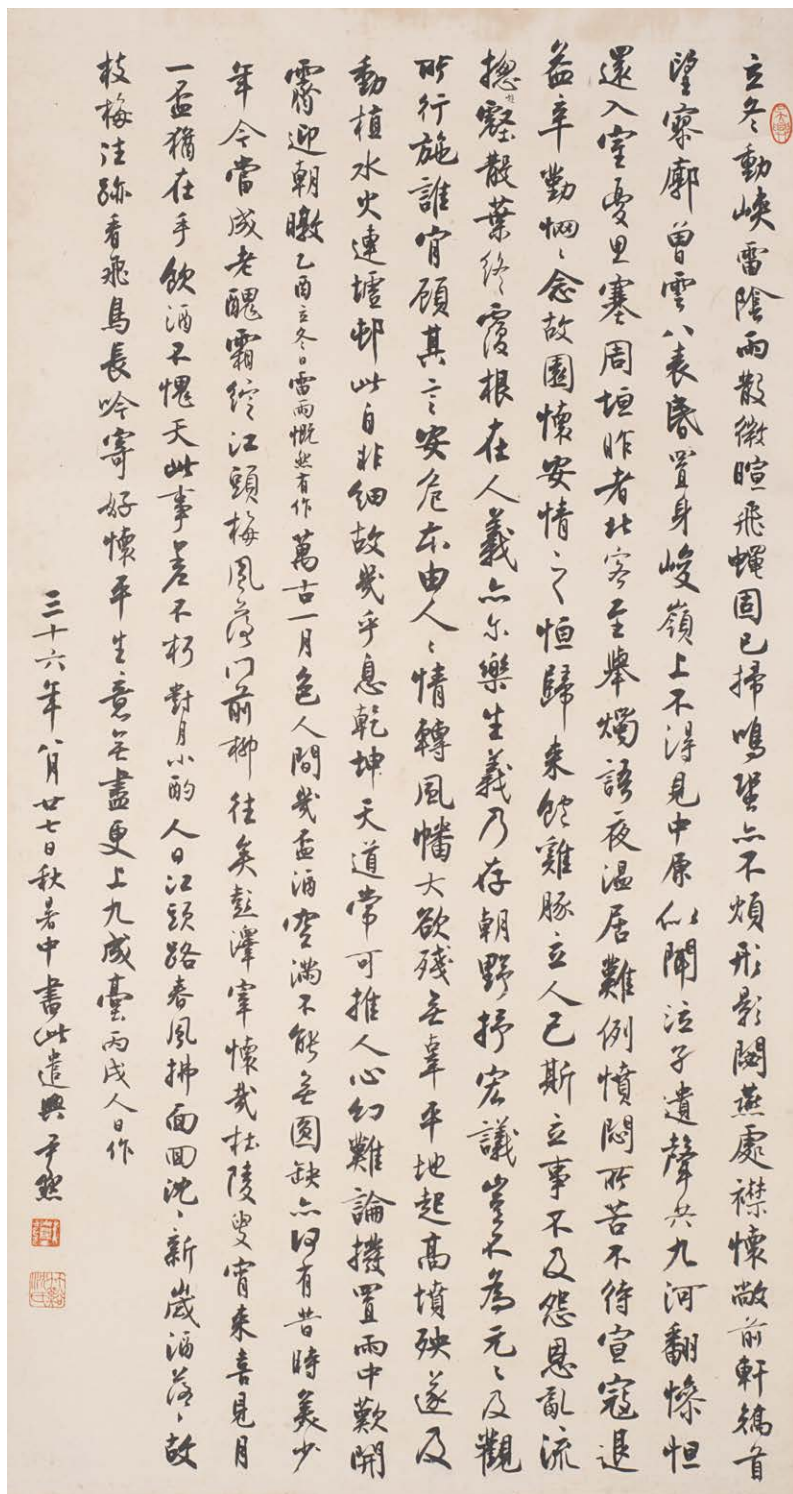 立冬動峽雷陰雨散微暄飛蠅固已掃鳴蛩亦不煩形影闕燕處襟懷敞前軒矯首
望寥廓曾雲八表昏置身峻嶺上不得見中原似聞泣孑遺聲共九河翻慘怛
還入室憂思塞周垣昨者北客至舉燭語夜温居難例憤悶所苦不待宣寇退
益辛勤惘〻念故園懷安情之恒歸來飽雞豚立人己斯立事不及怨恩亂流
揔歸壑散葉終覆根在人義亦尔樂生義乃存朝野抒宏議豈不為元〻及觀
所行施誰肯顧其言安危本由人〻情轉風幡大欲殘無辜平地起高墳殃遂及
動植水火連墟邨此自非細故幾乎息乾坤天道常可推人心幻難論撥置雨中歎開
霽迎朝暾乙酉立冬日雷雨慨然有作萬古一月色人間幾盃酒空滿不能無圓缺亦何有昔時美少
年今當成老醜霜綻江頭梅風落門前柳往矣彭澤宰懷哉杜陵叟宵來喜見月
一盃猶在手飲酒不愧天此事差不朽對月小酌人日江頭路春風拂面回沈〻新歲酒落〻故
枝梅注跡看飛鳥長吟寄好懷平生意無盡更上九成臺丙戌人日作
三十六年八月廿七日秋暑中書此遣興尹默